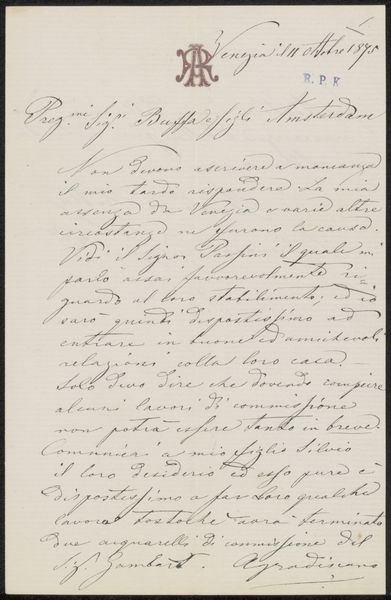 Venezia il 11 Ottobre 1875
R.P.K
Preg.mi Sig.ri Buffa e figli Amsterdam
Non devono ascrivere a mancanza
il mio tardo rispondere. La mia
assenza da Venezia e varie altre
circostanze ne furono la causa.
Vidi il Signor Pasini il quale mi
parlò assai favorevolmente ri-
guardo al loro stabilimento, ed io
sarò quindi dispostissimo ad
entrare in buone ed amichevoli
relazioni colla loro casa.
Solo devo dire che dovendo compiere
alcuni lavori di commissione
non potrà essere tanto in breve.
Comunicai a mio figlio Silvio
il loro desiderio ed esso pure è
dispostissimo a far Loro qualche
lavoro tostochè avrà terminato
due acquarelli di commissione del
Sig. Gambart. Agradiscano